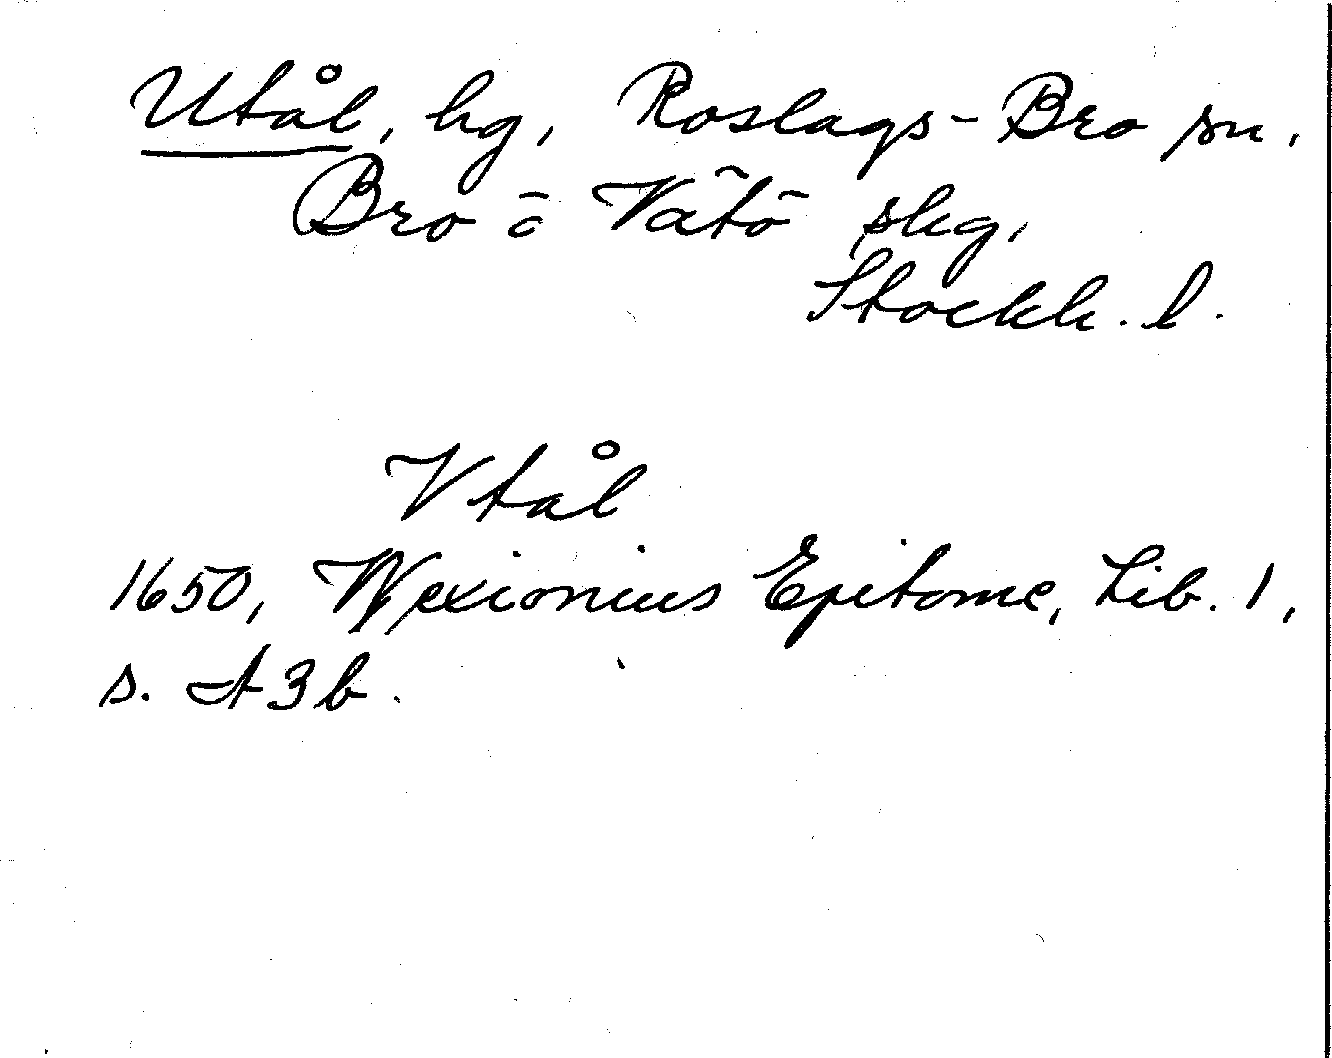 Utål, hg, Roslags-Bro sn.
Bro o Vätö skg,
Stockh. l.
Vtål
1650, Wexionius Epitome, Lib. 1,
s. A3b.